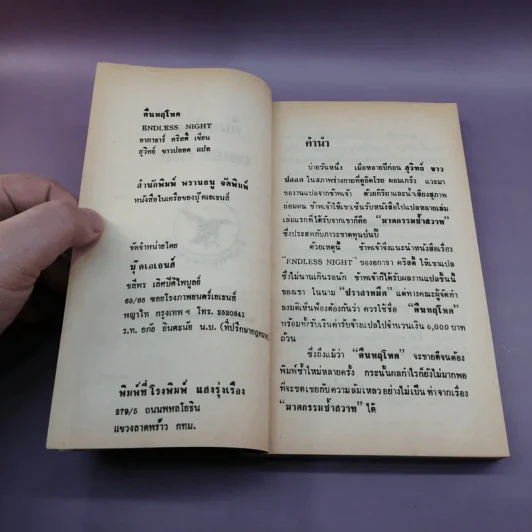 คืนพฤโหด
ENDLESS NIGHT
อากาธาร์ คริสตี้ เขียน
สุวิทย์ ขาวปลอด แปล
สำนักพิมพ์ พรานธนู จัดพิมพ์
หนังสือในเครือของบุ๊คเอเธนส์
จัดจำหน่ายโดย
บุ๊คเอเธนส์
ชลิพร เลิศปิติไพบูลย์
69/65 ซอยโรงภาพยนตร์เอเธนส์
พญาไท กรุงเทพ ฯ โทร. 2520641
ร.ท. อภัย อินตะนัย น.บ. (ที่ปรึกษากฎหมาย)
พิมพ์ที่ โรงพิมพ์ แสงรุ่งเรือง
279/5 ถนนพหลโยธิน
แขวงลาดพร้าว กทม.
คำนำ
บ่ายวันหนึ่ง เมื่อหลายปีก่อน สุวิทย์ ขาว
ปลอด ในสภาพร่างกายที่ดูอิดโรย ผอมเกร็ง แวะมา
ของานแปลจากข้าพเจ้า ด้วยกิริยาและน้ำเสียงสุภาพ
ถ่อมตน ข้าพเจ้าให้เขาเซ็นรับหนังสือไปแปลหลายเล่ม
เล่มแรกที่ได้รับจากเขาก็คือ "ฆาตกรรมซ้ำสวาท"
ซึ่งประสพกับภาวะขาดทุนป่นปี้
ด้วยเหตุนี้ ข้าพเจ้าจึงแนะนำหนังสือเรื่อง
"ENDLESS NIGHT" ของอกาธา คริสตี้ ให้เขาแปล
ซึ่งไม่นานเกินรอนัก ข้าพเจ้าก็ได้รับผลงานแปลชิ้นนี้
ของเขา ในนาม "ปราสาทมืด" แต่ทางคณะผู้จัดทำ
ลงมติเห็นพ้องต้องกันว่า ควรใช้ชื่อ "คืนพฤโหด"
พร้อมทั้งรับเงินค่ารับจ้างแปลไปจำนวนเงิน 6,000 บาท
ถ้วน
ซึ่งถึงแม้ว่า "คืนพฤโหด" จะขายดีจนต้อง
พิมพ์ซ้ำใหม่หลายครั้ง กระนั้นผลกำไรก็ยังไม่มากพอ
ที่จะชดเชยกับความล้มเหลวอย่างไม่เป็นท่าจากเรื่อง
"ฆาตกรรมซ้ำสวาท" ได้